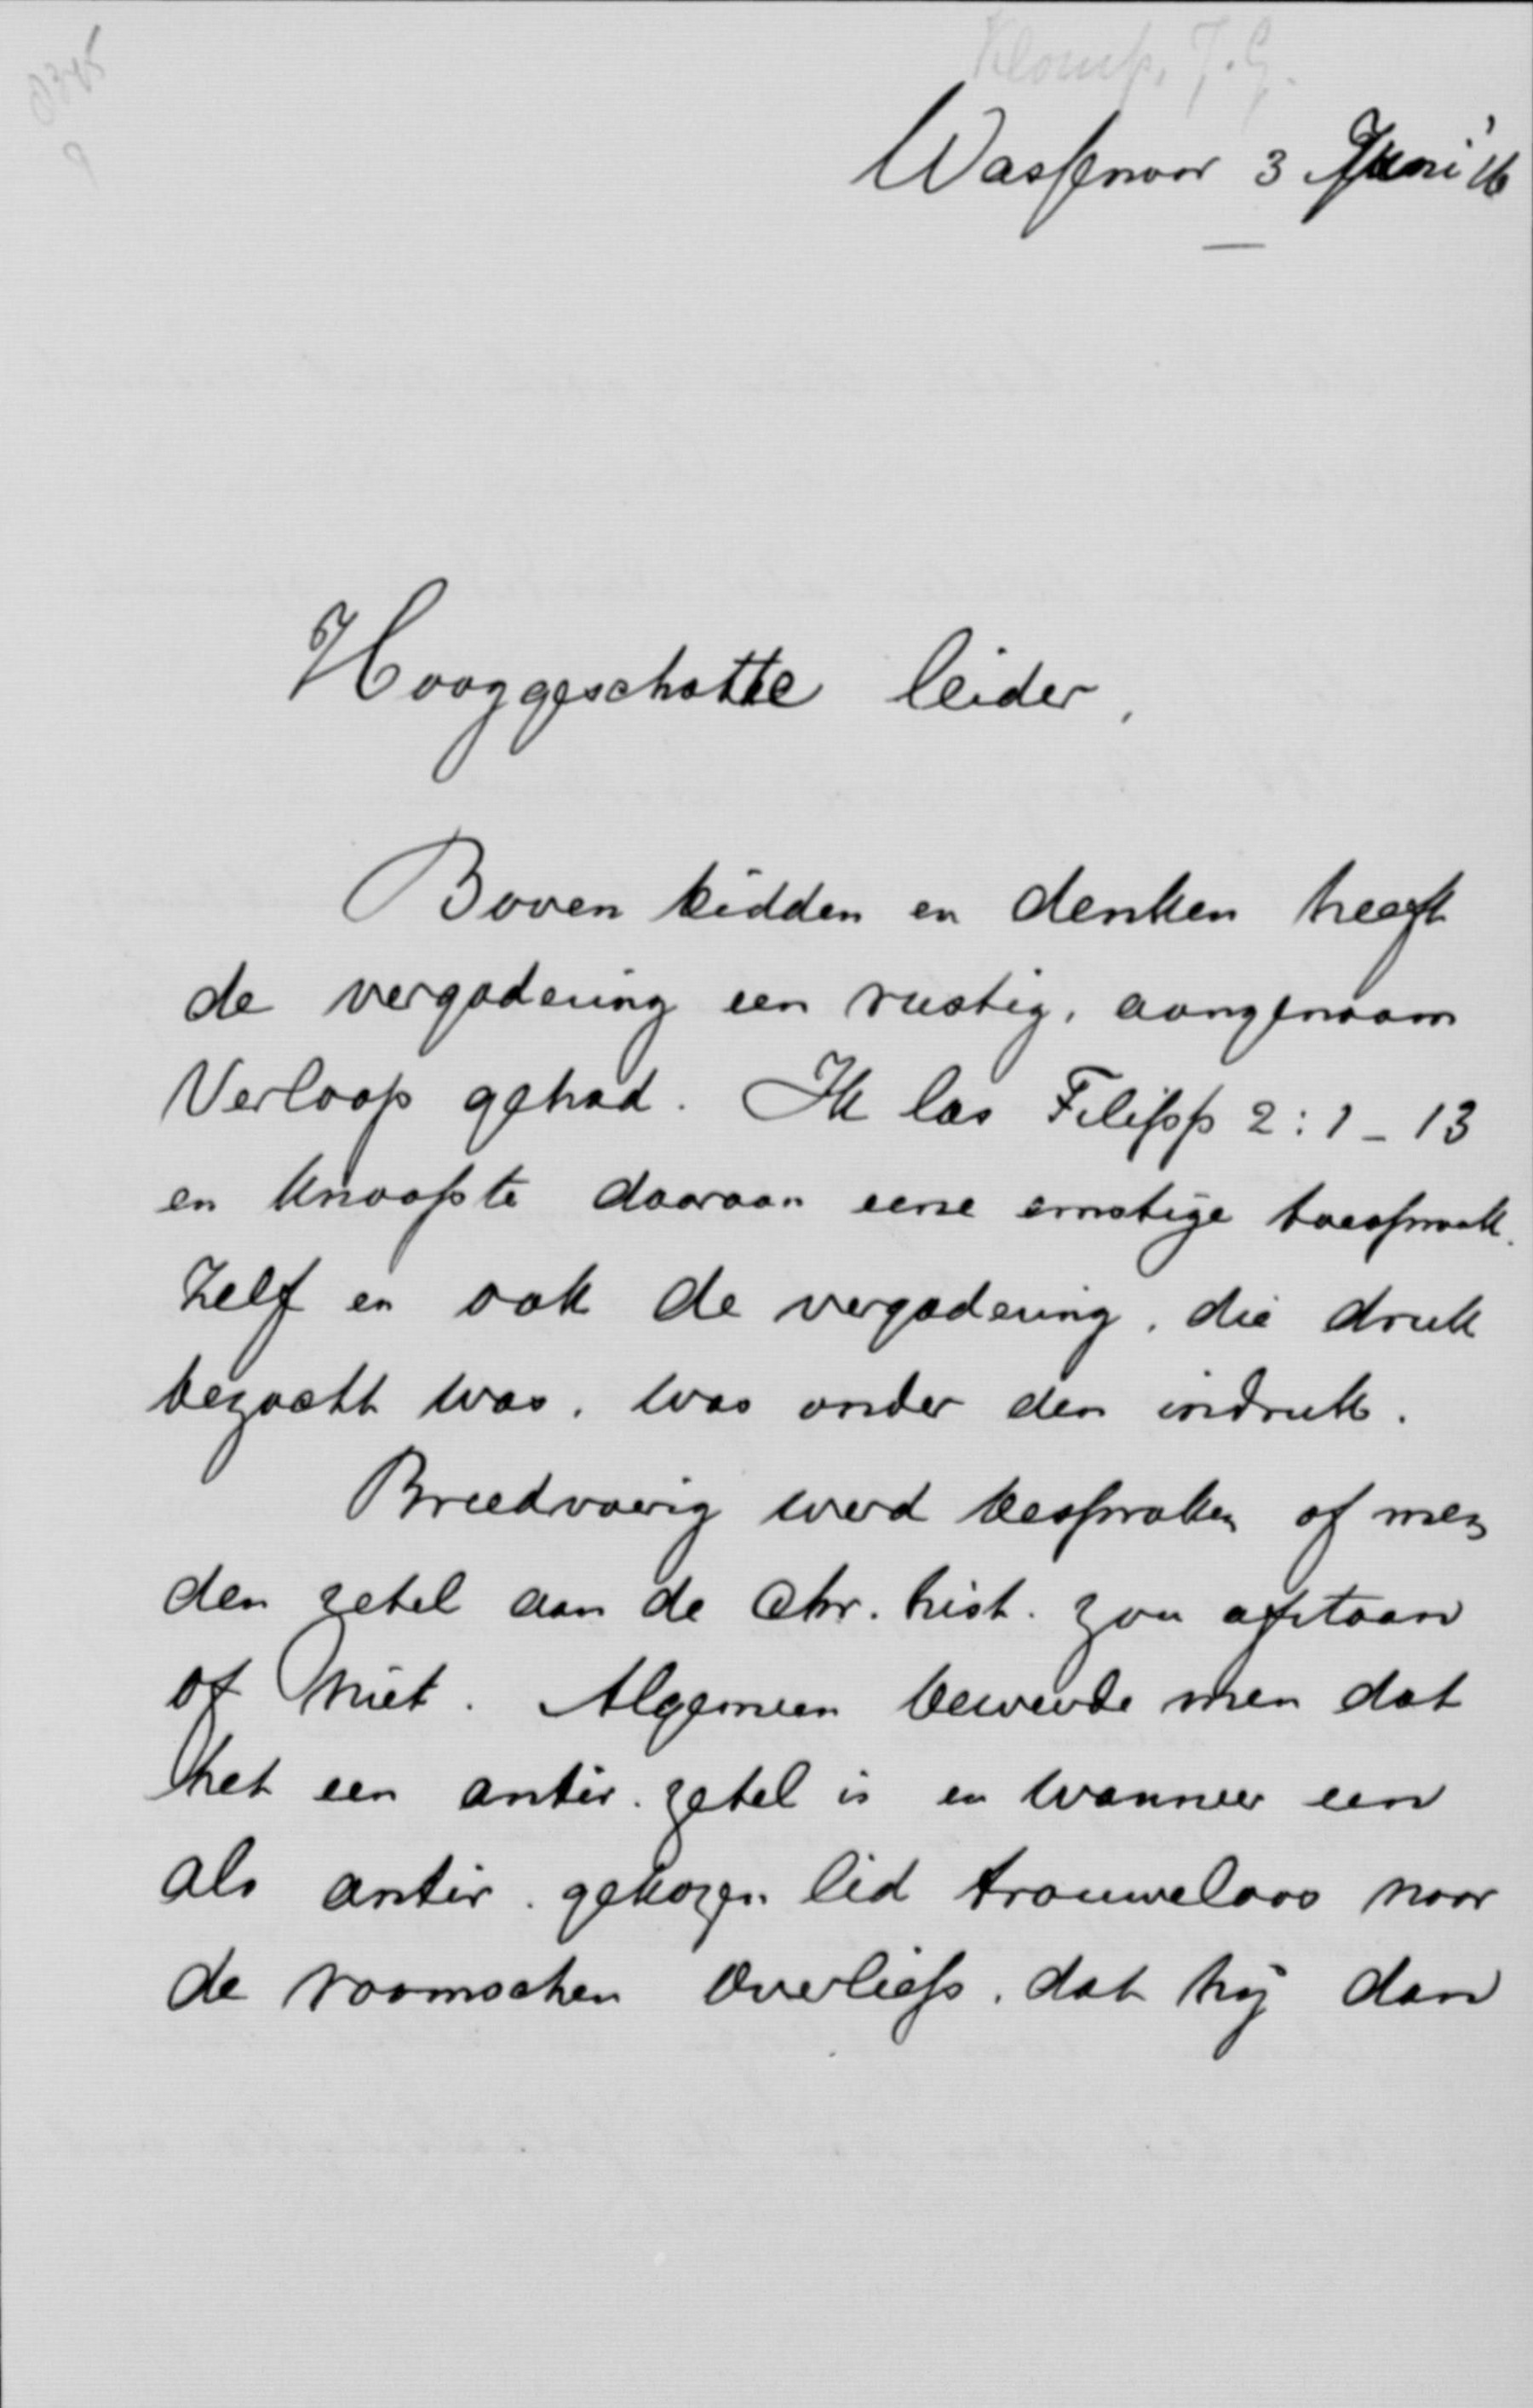 Klomp, J.G.
Wassenaar 3 Juni '16
Hooggeschatte leider,
Boven bidden en denken heeft
de vergadering een rustig, aangenaam
Verloop gehad. Ik las Filipp 2:1-13
en knoopte daaraan eene ernstige toespraak.
Zelf en ook de vergadering, die druk
bezocht was, was onder den indruk.
Breedvoerig werd besproken of men
den zetel aan de Chr. hist. zou afstaan
of niet. Algemeen beweerde men dat
het een antir. zetel is en wanneer een
als antir. gekozen lid trouweloos naar
de roomschen overliep, dat hij dan